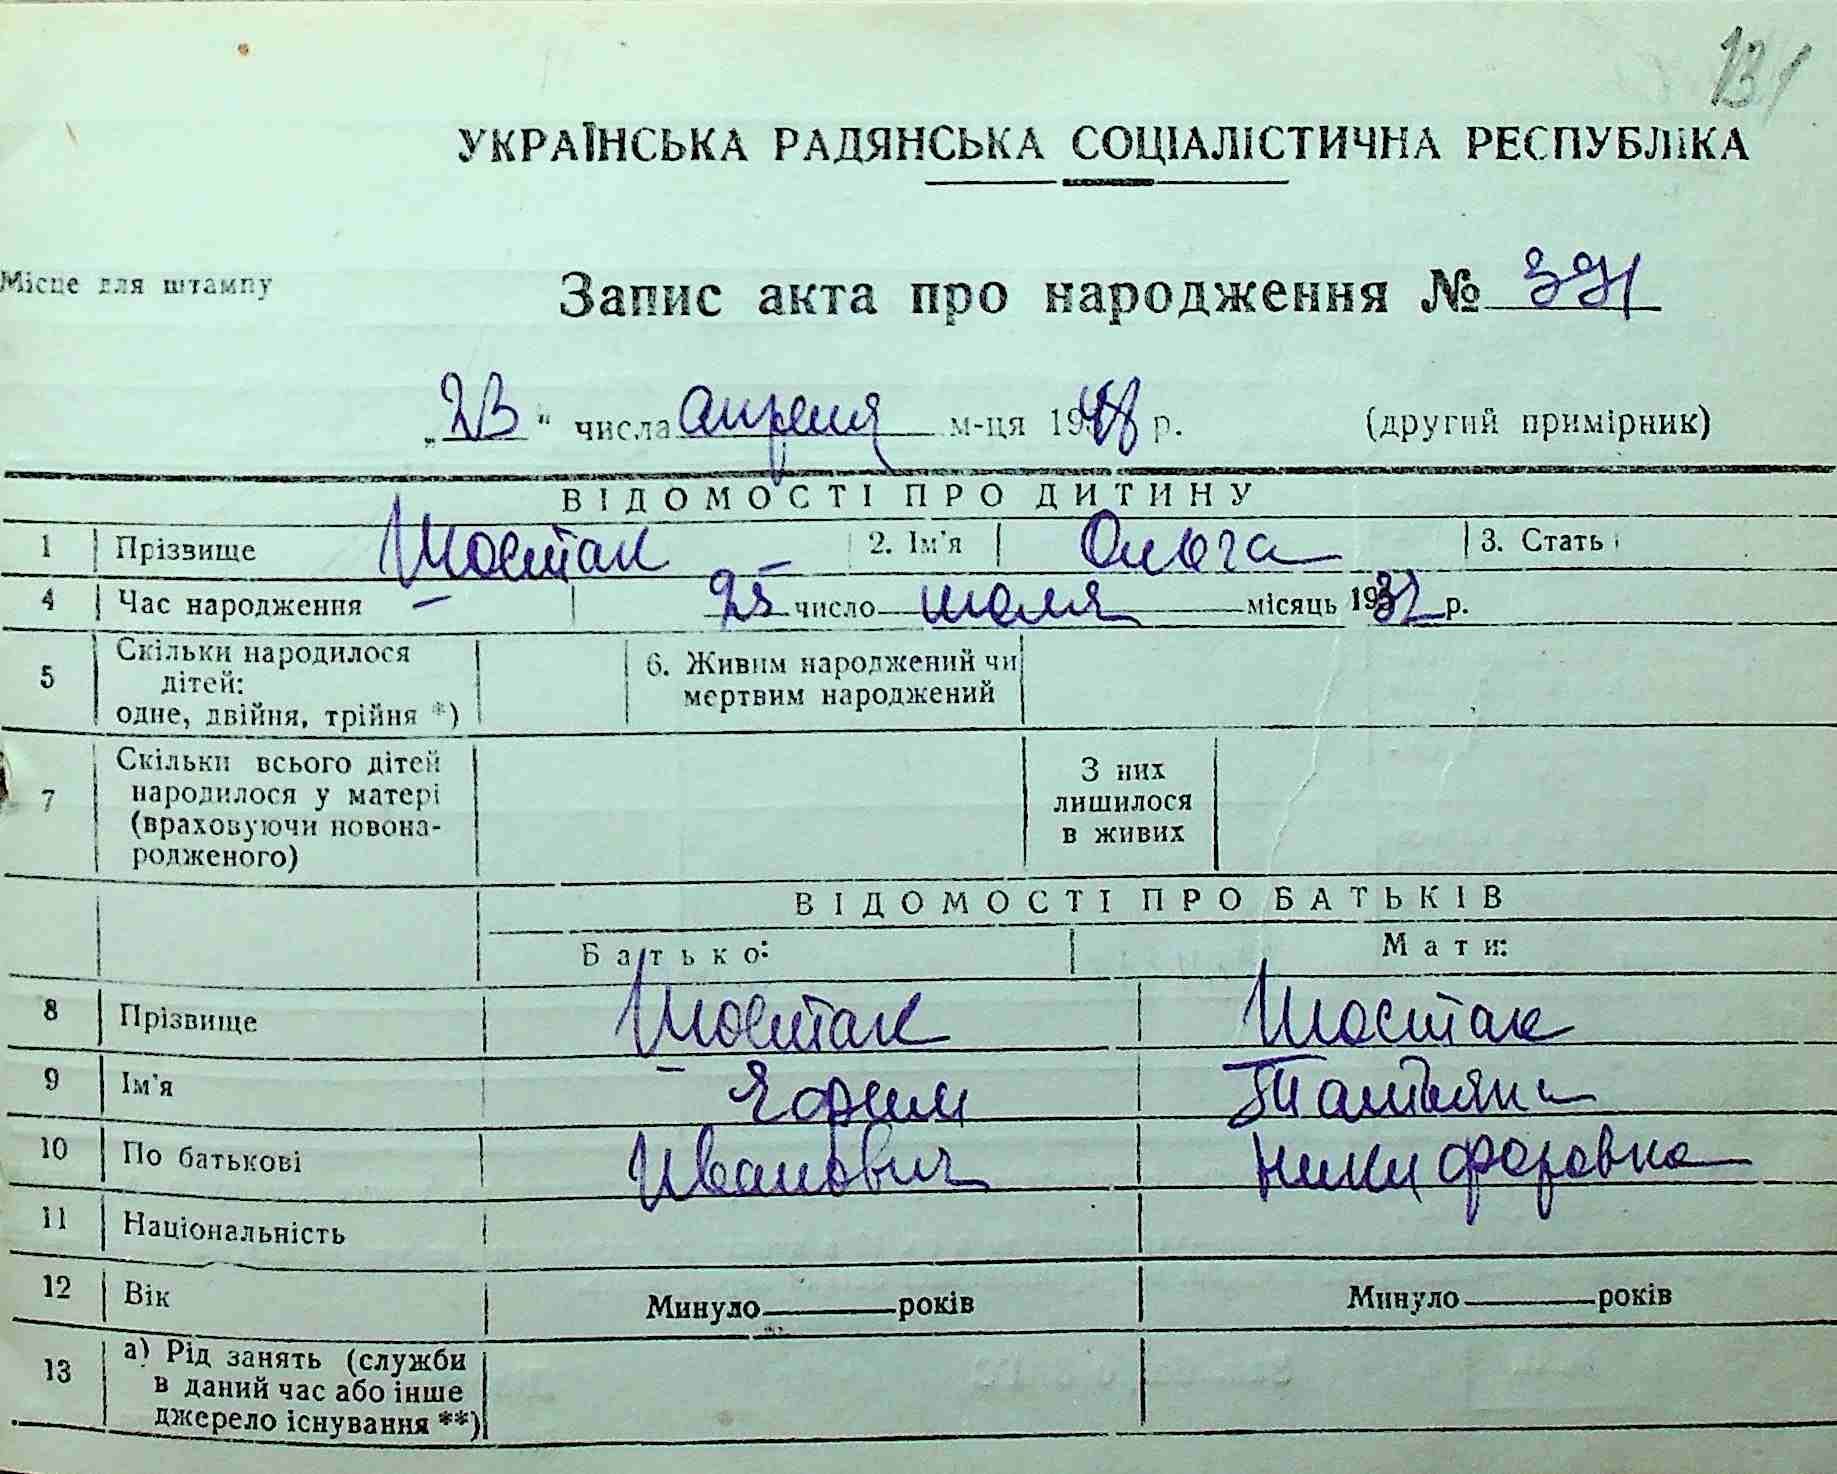 131
УКРАЇНСЬКА РАДЯНСЬКА СОЦІАЛІСТИЧНА РЕСПУБЛІКА
Місце для штампу
Запис акта про народження № 391
„23" числа апреля м-ця 1948 р. (другий примірник)
ВІДОМОСТІ ПРО ДИТИНУ
1 Прізвище Шостак 2. Ім'я Ольга 3. Стать
4 Час народження 25 число июля місяць 1937 р.
5 Скільки народилося дітей: одне, двійня, трійня *) 6. Живим народжений чи мертвим народжений
7 Скільки всього дітей народилося у матері (враховуючи новона-родженого) З них лишилося в живих
ВІДОМОСТІ ПРО БАТЬКІВ
Батько: Мати:
8 Прізвище Шостак Шостак
9 Ім'я Ефим Татьяна
10 По батькові Иванович Никифоровна
11 Національність
12 Вік Минуло років Минуло років
13 а) Рід занять (служби в даний час або інше джерело існування **)